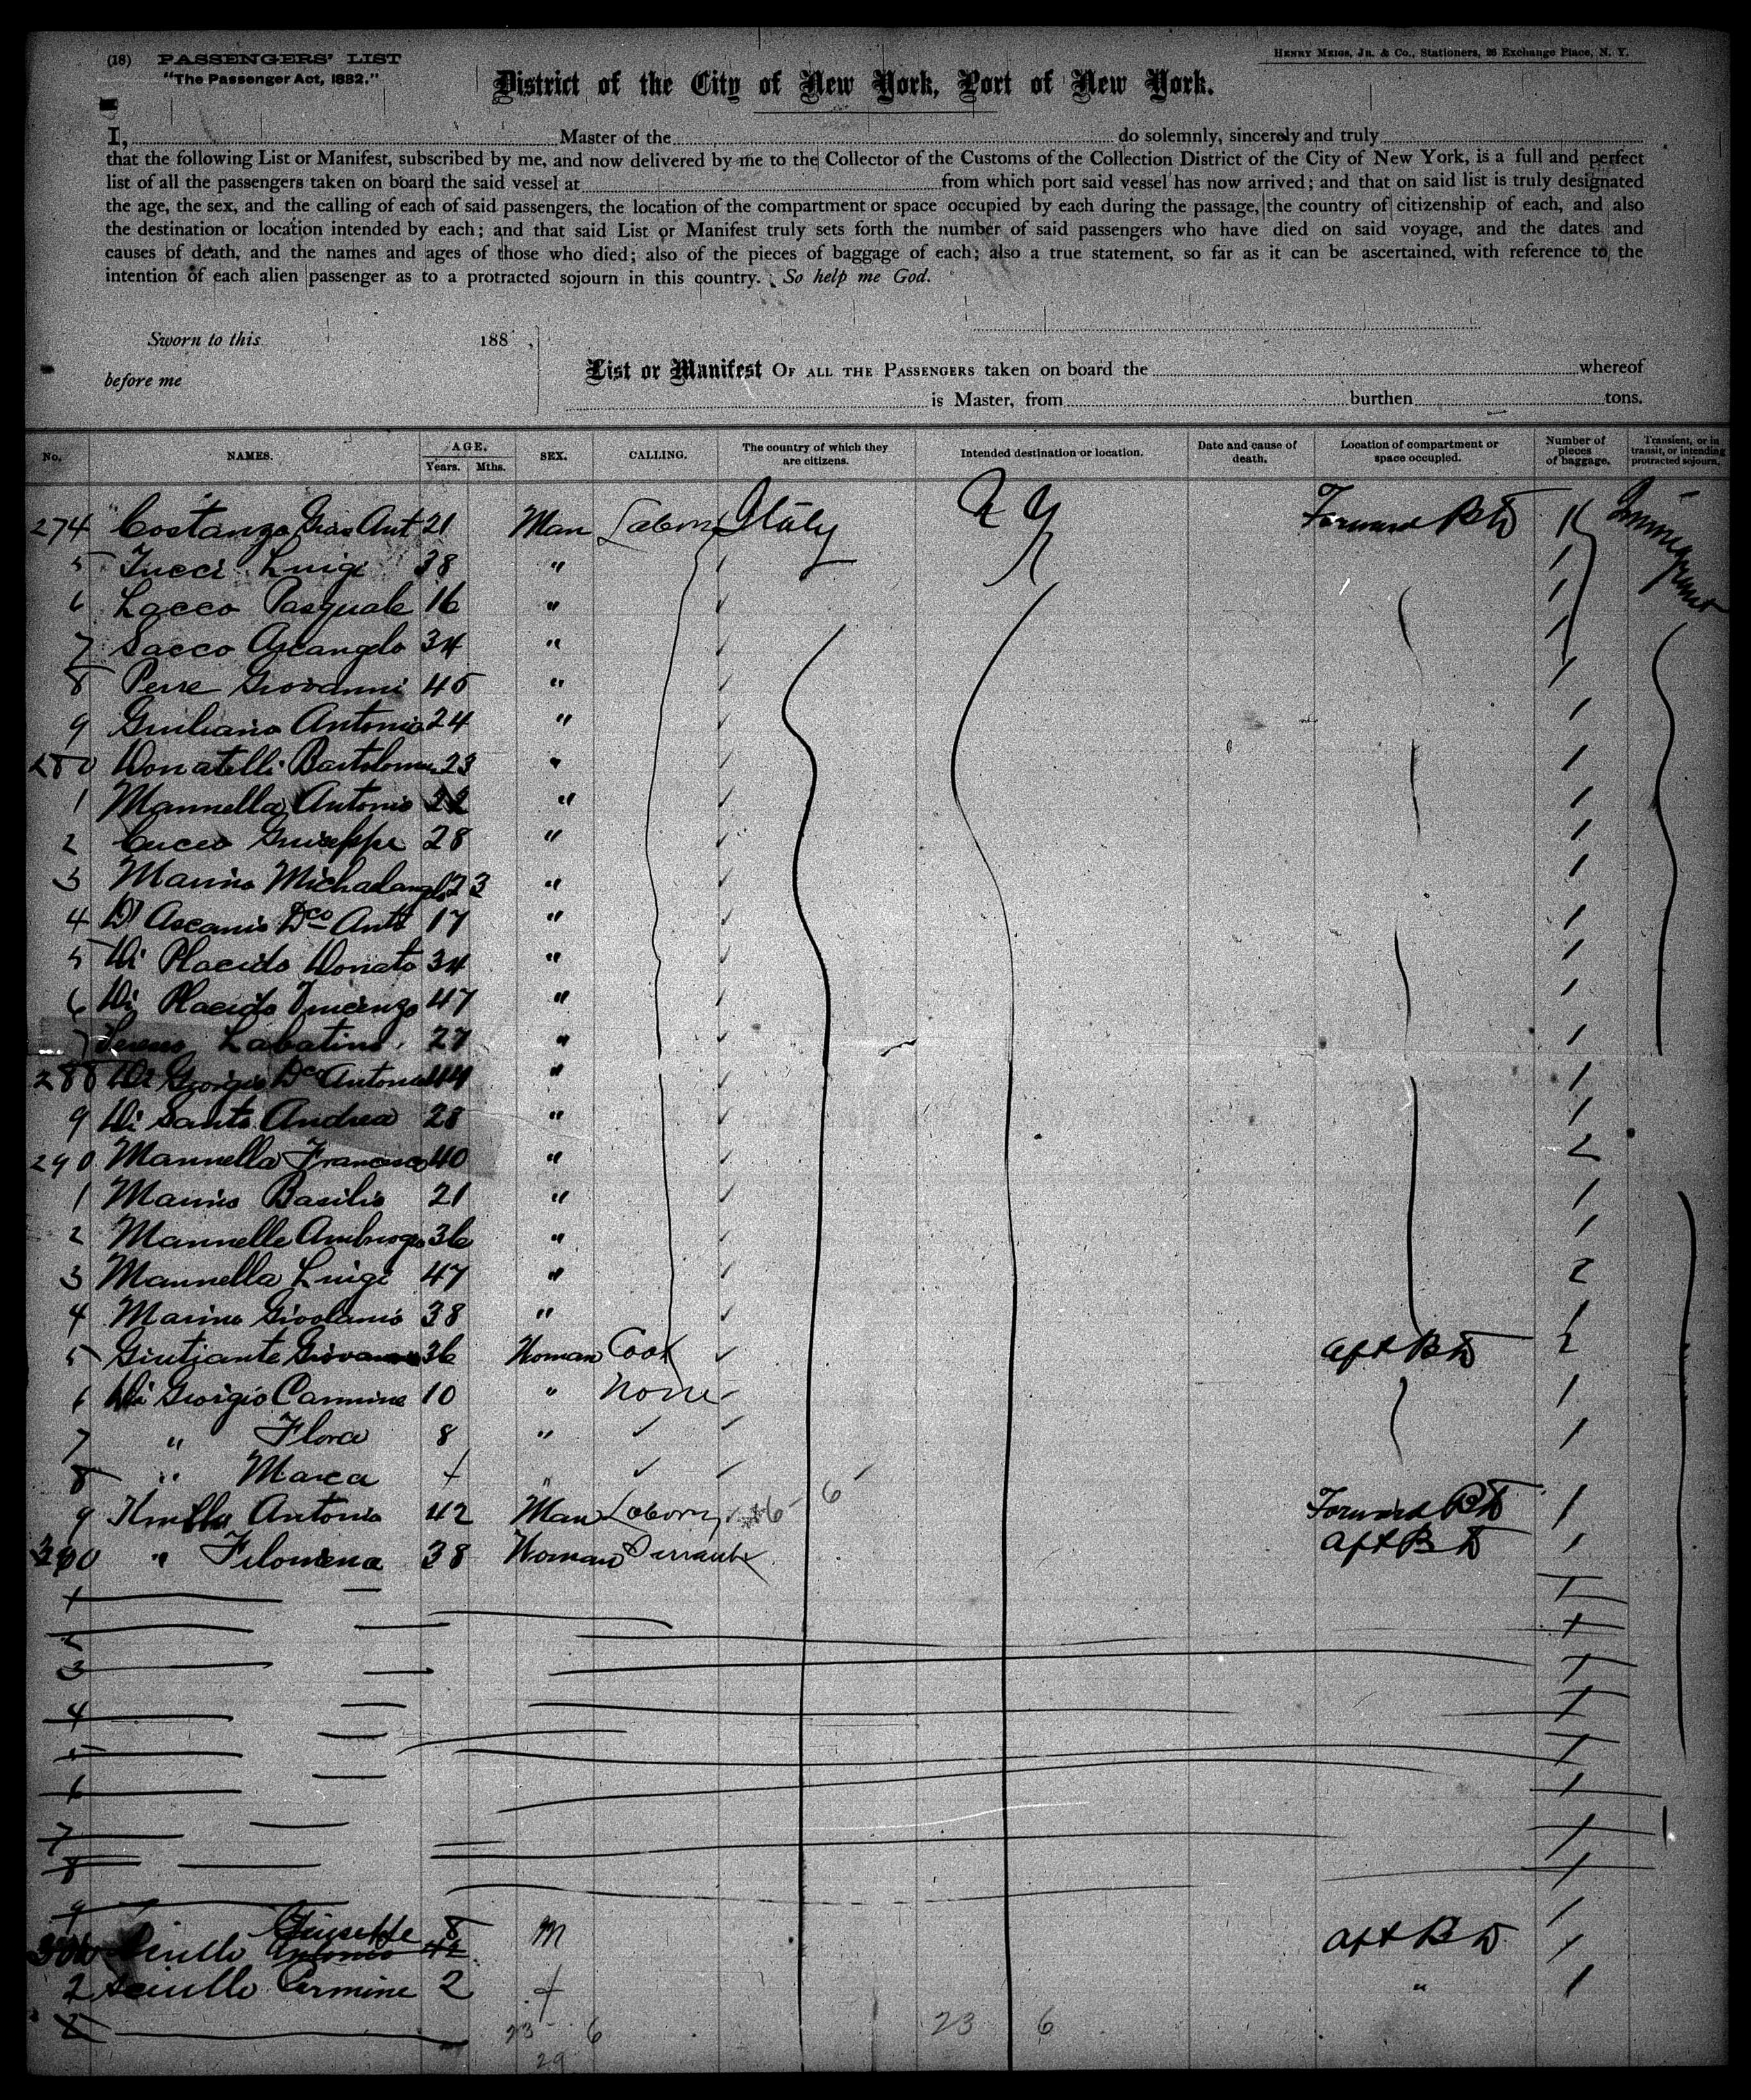 (18) PASSENGERS' LIST
"The Passenger Act, 1882."
HENRY MEIGS, JR. & CO., Stationers, 26 Exchange Place, N. Y.
District of the City of New York, Port of New York.
I, Master of the do solemnly, sincerely and truly
that the following List or Manifest, subscribed by me, and now delivered by me to the Collector of the Customs of the Collection District of the City of New York, is a full and perfect
list of all the passengers taken on board the said vessel at from which port said vessel has now arrived; and that on said list is truly designated
the age, the sex, and the calling of each of said passengers, the location of the compartment or space occupied by each during the passage, the country of citizenship of each, and also
the destination or location intended by each; and that said List or Manifest truly sets forth the number of said passengers who have died on said voyage, and the dates and
causes of death, and the names and ages of those who died; also of the pieces of baggage of each; also a true statement, so far as it can be ascertained, with reference to the
intention of each alien passenger as to a protracted sojourn in this country. So help me God.
Sworn to this 188 ,
before me
List or Manifest OF ALL THE PASSENGERS taken on board the whereof
is Master, from burthen tons.
No. NAMES. AGE. Years. Mths. SEX. CALLING. The country of which they are citizens. Intended destination or location. Date and cause of death. Location of compartment or space occupied. Number of pieces of baggage. Transient, or in transit, or intending protracted sojourn.
274 Costanzo Ant 21 Man Labor Italy N Y Forward 1
5 Tucci Luigi 38 " 1
6 Lacco Pasquale 16 " 1
7 Sacco Arcangelo 34 " 1
8 Perre Giovanni 45 " 1
9 Giuliano Antonio 24 " 1
280 Donatelli 23 " 1
1 Mannella Antonio 22 " 1
2 Cucco Giuseppe 28 " 1
3 Marino Michelangelo 23 " 1
4 D'Ascanio Dco Anto 17 " 1
5 Di Placido Donato 34 " 1
6 Di Placido Vincenzo 47 " 1
7 Labatino 27 " 1
288 Di Giorgio Dco Antonio 44 " 1
9 Di Santo Andrea 28 " 1
290 Mannella Francesco 40 " 2
1 Marino Basilio 21 " 1
2 Mannella Ambrogio 36 " 1
3 Mannella Luigi 47 " 2
4 Marino 38 " 1
5 36 Woman Cook Aft 2
6 Di Giorgio Carmine 10 " None 1
7 " Flora 8 " 1
8 " Maria "
9 Antonio 42 Man Labor 6 Forward 1
300 " Filomena 38 Woman Servant Aft 1
1
2
3
4
5
6
7
8
9
Giuseppe 8 M Aft 1
Antonio 42
2 Carmine 2 " 1
23 6 23 6
29